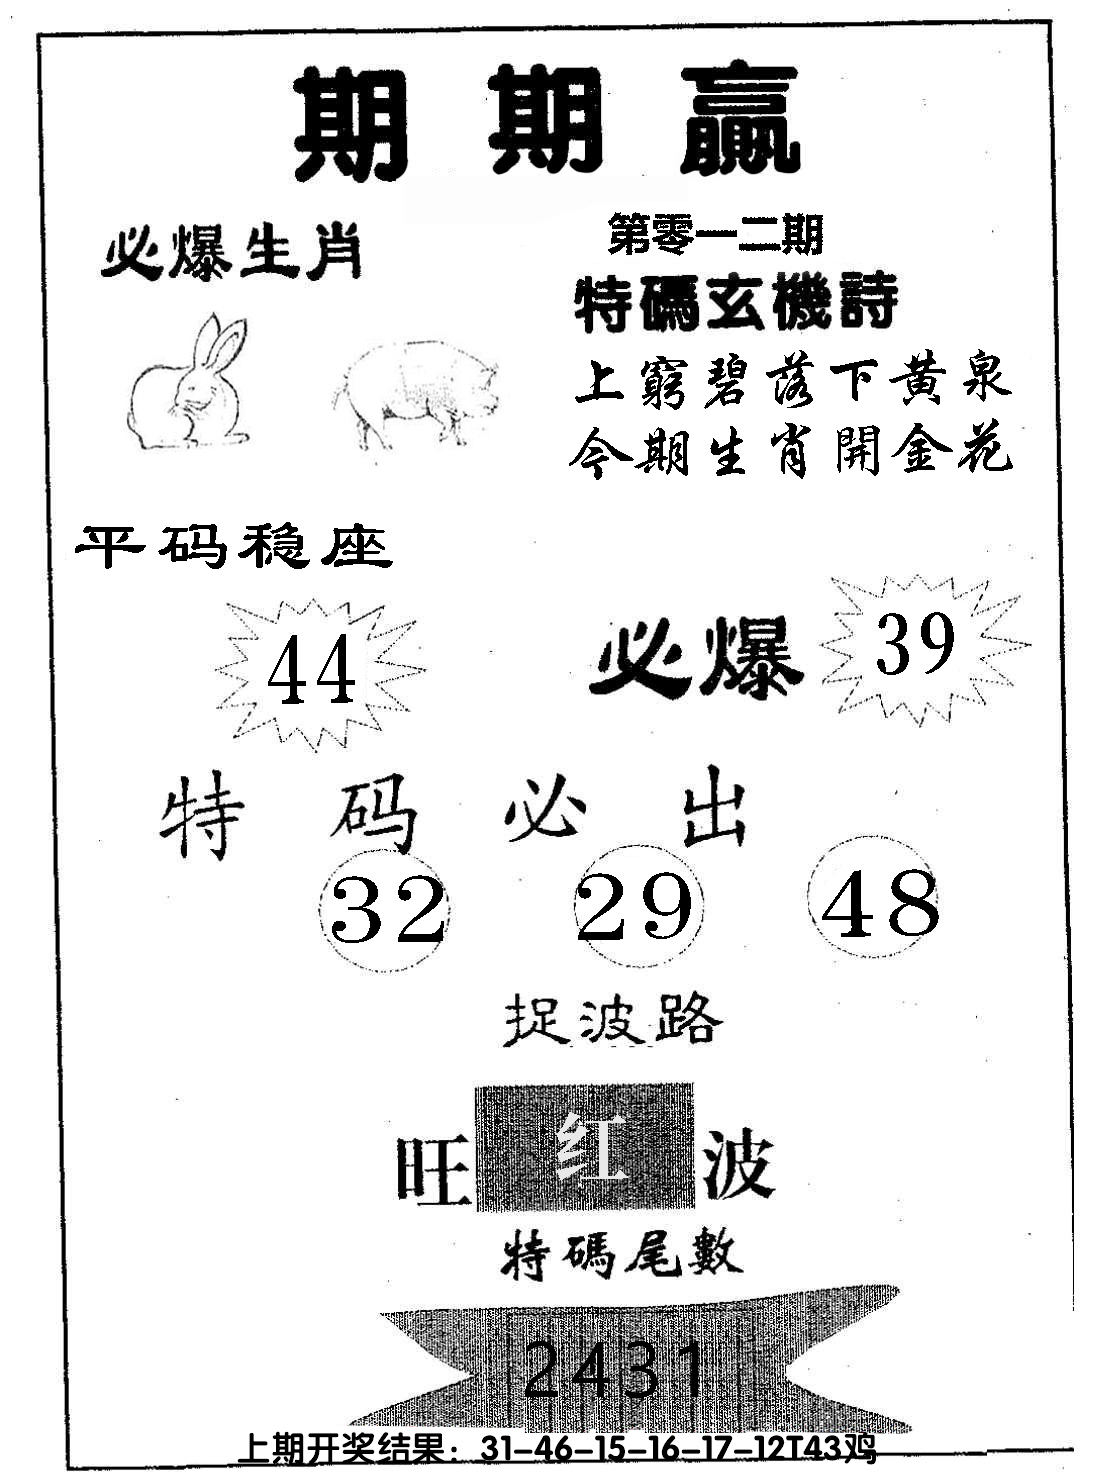 期期赢
必爆生肖
第零一二期
特碼玄機詩
上窮碧落下黄泉
今期生肖開金花
平码稳座
44
必爆 39
特码必出
32 29 48
捉波路
旺 红 波
特碼尾數
2431
上期开奖结果：31-46-15-16-17-12T43鸡